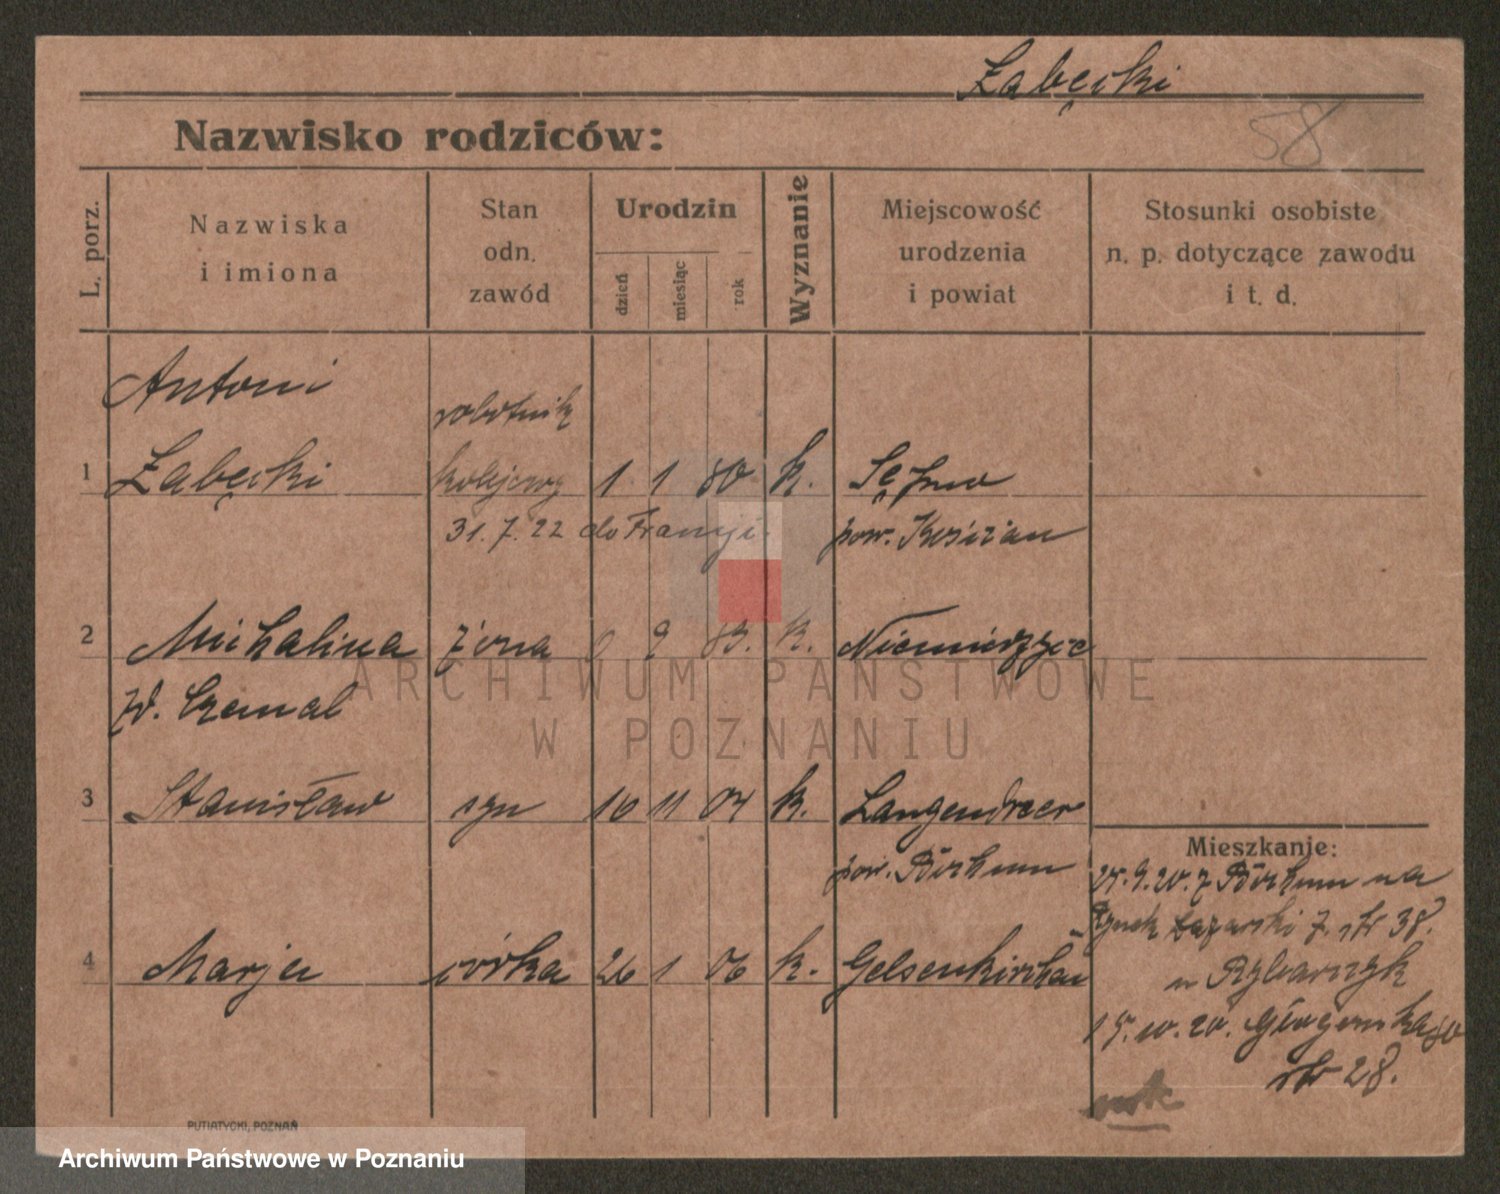 Żabęcki
58
Nazwisko rodziców:
L. porz.
Nazwiska
i imiona
Stan
odn.
zawód
Urodzin
dzień
miesiąc
rok
Wyznanie
Miejscowość
urodzenia
i powiat
Stosunki osobiste
n. p. dotyczące zawodu
i t. d.
Antoni
robotnik
1 Żabęcki kolejowy 1 1 80 k.
31. 7. 22 do Francji.
pow. Kościan
2 Michalina żona 9 83. k.
zd.
3 Stanisław syn 16 11 04 k. Langendreer
pow. Bochum
Mieszkanie:
25. 9. 20. z Bochum na
Rynek Łazarski 7. str 38.
4 Marja córka 26 1 06 k. Gelsenkirchen
u Rybarczyk
15. 10. 20. Głogowska
str 28.
PUTIATYCKI, POZNAŃ
ARCHIWUM PAŃSTWOWE
W POZNANIU
Archiwum Państwowe w Poznaniu